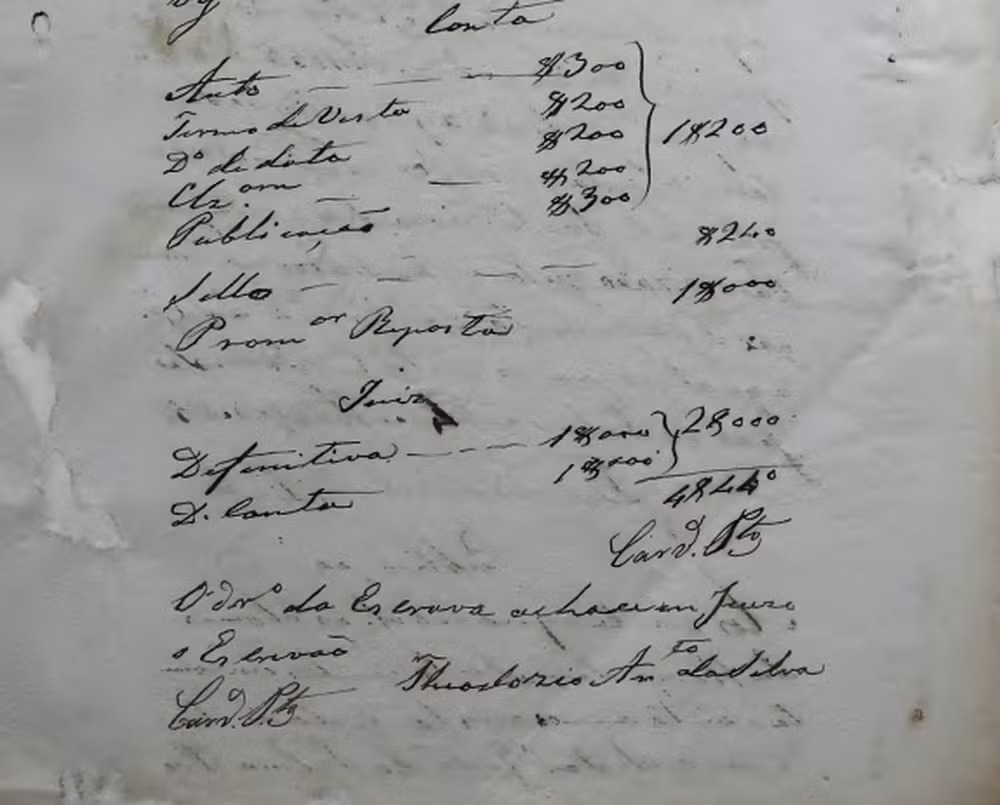 Conta
Auto $300
Termo de Vista $200
Do de data $200 1$200
Clz.am $200
Publicação $300
$240
Sello 1$000
Promor Reposta
Juiz
Definitiva 1$000 2$000
D. Conta 1$000
4$440
Card. Pto
O dro da Escrava achace em Juizo
o Escrivaõ
Theodozio Anto da Silva
Card. Pto